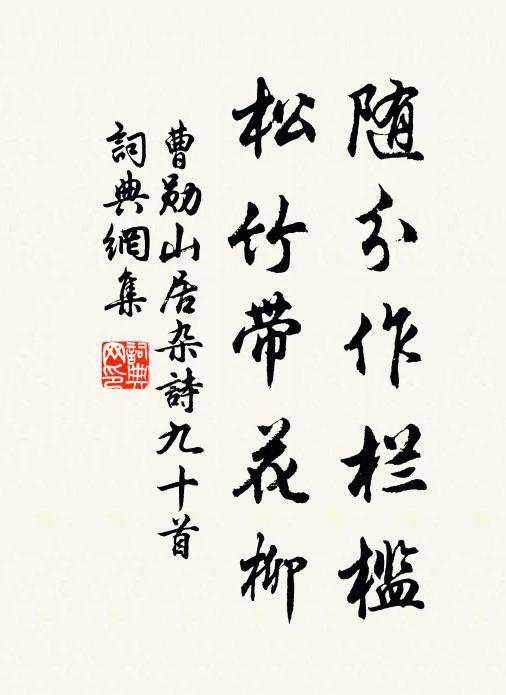 随分作栏槛
松竹带花柳
曹勋山居杂詩九十首
詞典網集
詞典网印